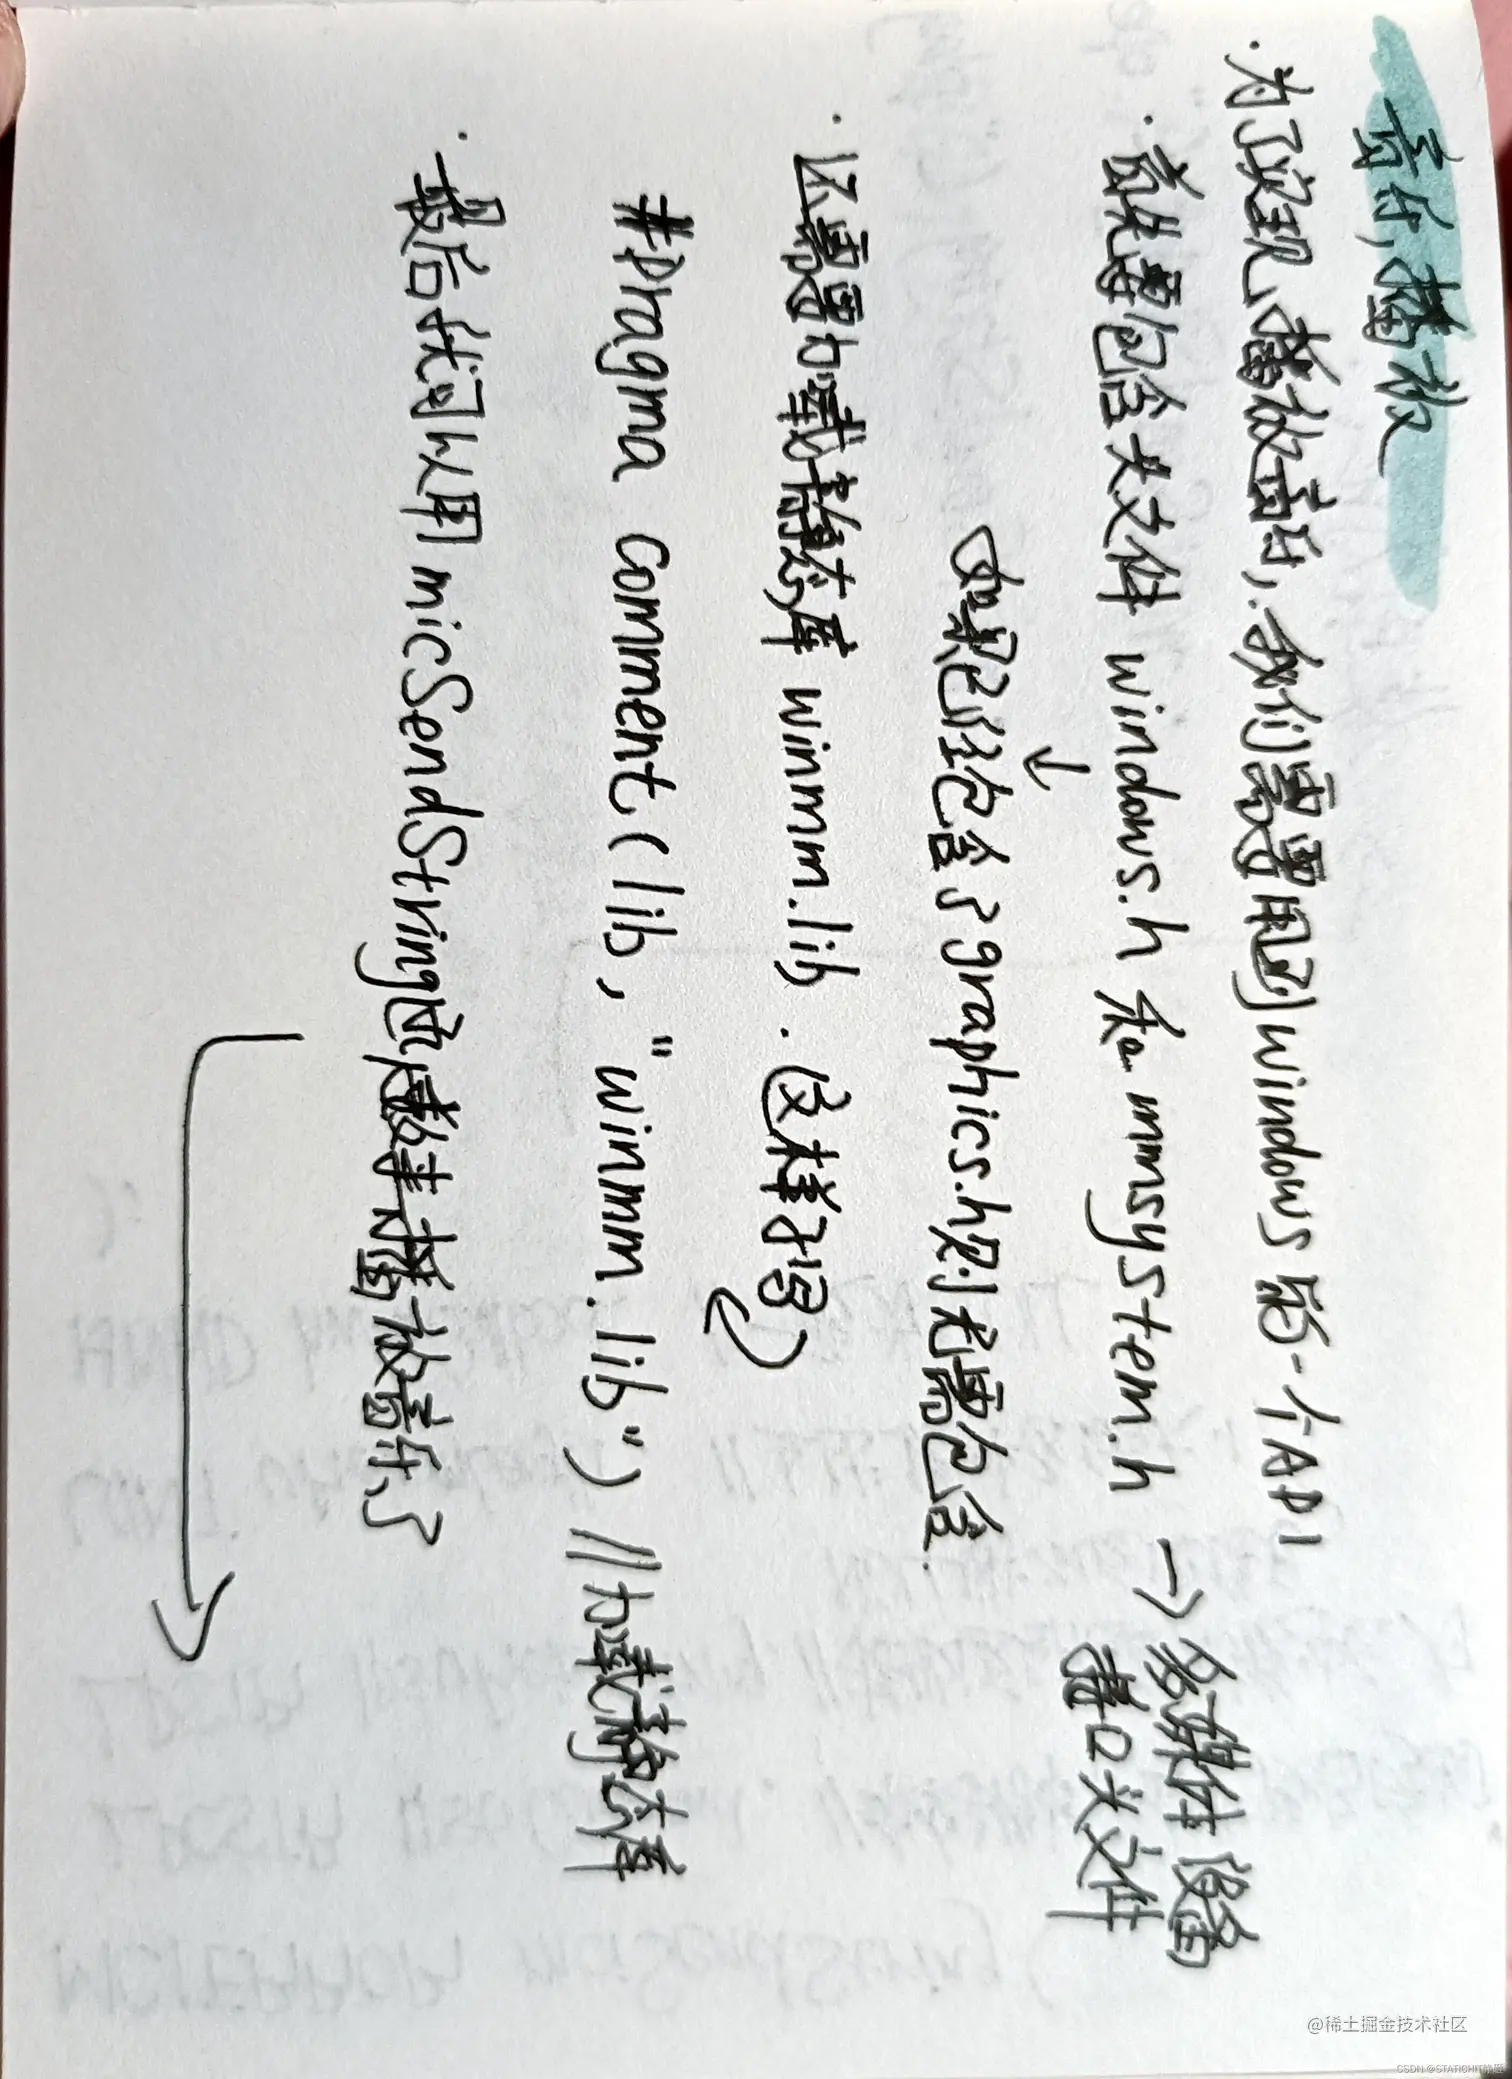 音乐播放
·为了实现播放音乐,我们需用到windows的一个API
·首先要包含头文件 windows.h 和 mmsystem.h → 多媒体设备
接口头文件
如果已经包含了graphics.h则无需包含.
·还需要加载静态库 winmm.lib . (这样子写)
#pragma comment (lib, "winmm.lib") //加载静态库
·最后我们以用 micSendString函数来播放音乐了
@稀土掘金技术社区